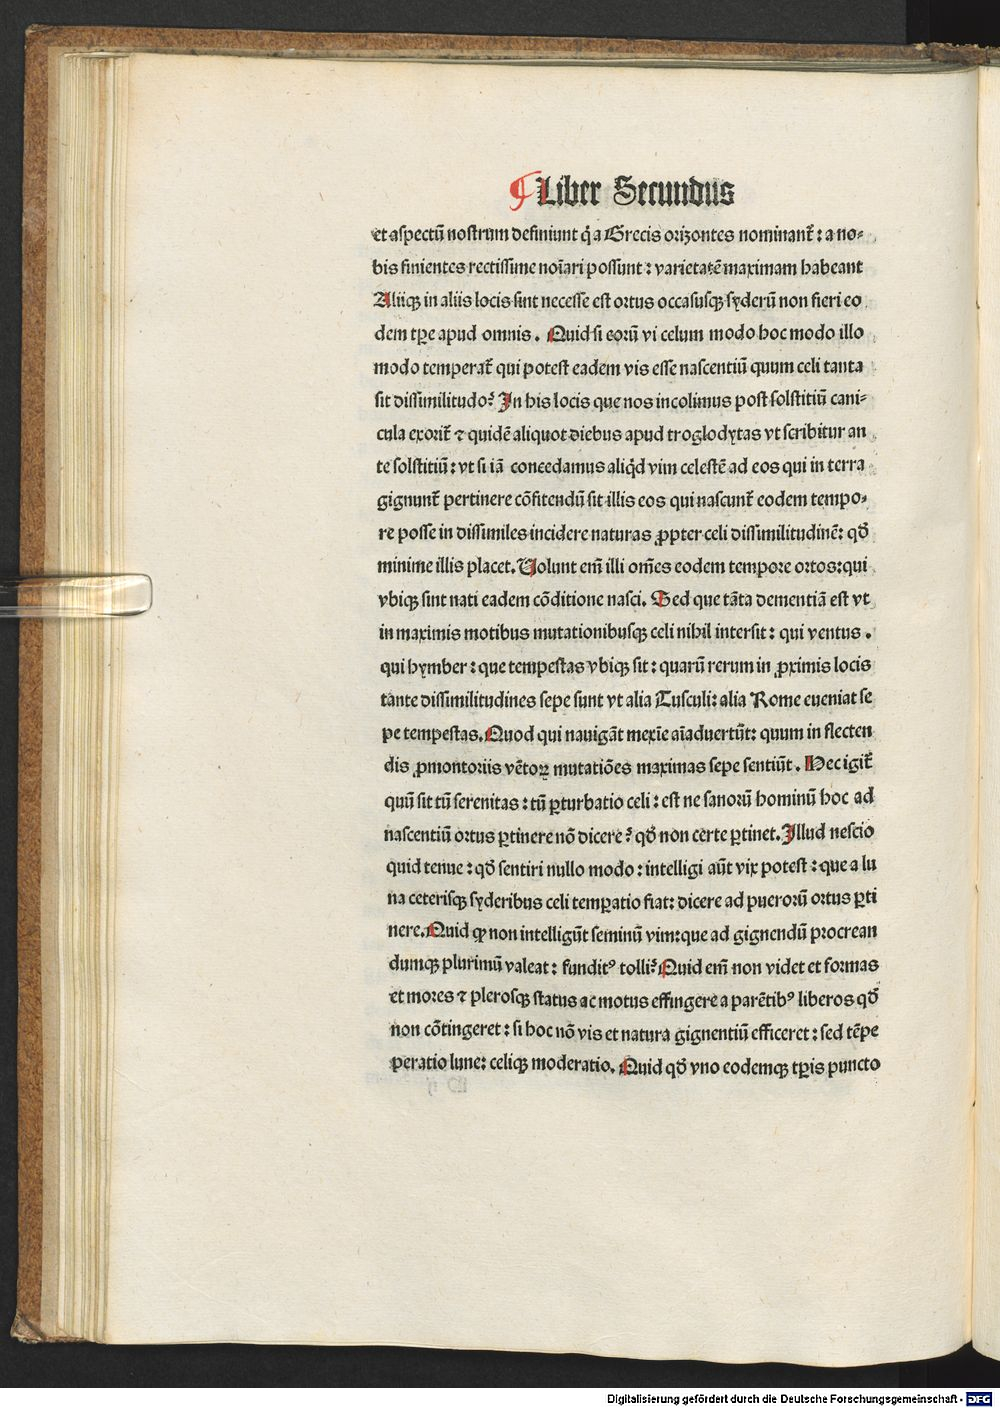 ¶ Liber Secundus
et aspectū nostrum definiunt q̄ a Grecis orizontes nominant̄ : a no⸗
bis finientes rectissime noīari possunt : varietatē maximam habeant
Aliiq̄ in aliis locis sint necesse est ortus occasusq̄ syderū non fieri eo
dem tp̄e apud omnis . Quid si eorū vi celum modo hoc modo illo
modo temperat̄ qui potest eadem vis esse nascentiū quum celi tanta
sit dissimilitudo? In his locis que nos incolimus post solstitiū cani⸗
cula exorit̄ ⁊ quidē aliquot diebus apud troglodytas vt scribitur an
te solstitiū : vt si iā concedamus aliq̄d vim celestē ad eos qui in terra
gignunt̄ pertinere cōfitendū sit illis eos qui nascunt̄ eodem tempo⸗
re posse in dissimiles incidere naturas ꝓpter celi dissimilitudinē: qđ
minime illis placet. Uolunt em̄ illi om̄es eodem tempore ortos: qui
vbiq̄ sint nati eadem cōditione nasci. Sed que tāta dementiā est vt
in maximis motibus mutationibusq̄ celi nihil intersit : qui ventus .
qui hymber : que tempestas vbiq̄ sit : quarū rerum in ꝓximis locis
tante dissimilitudines sepe sunt vt alia Tusculi: alia Rome eueniat se
pe tempestas. Quod qui nauigāt mexīe aīaduertūt: quum in flecten
dis ꝓmontoriis vētoꝝ mutatiōes maximas sepe sentiūt . Hec igit̄
quū sit tū serenitas : tū ꝑturbatio celi : est ne sanorū hominū hoc ad
nascentiū ortus ꝑtinere nō dicere ? qđ non certe ꝑtinet. Illud nescio
quid tenue : qđ sentiri nullo modo : intelligi aūt vix potest : que a lu
na ceterisq̄ syderibus celi temꝑatio fiat: dicere ad puerorū ortus ꝑti
nere. Quid ꝙ non intelligūt seminū vim: que ad gignendū procrean
dumq̄ plurimū valeat : funditꝰ tolli? Quid em̄ non videt et formas
et mores ⁊ plerosq̄ status ac motus effingere a parētibꝰ liberos qđ
non cōtingeret : si hoc nō vis et natura gignentiū efficeret : sed tēpe
peratio lune: celiq̄ moderatio. Quid qđ vno eodemq̄ tp̄is puncto
Digitalisierung gefördert durch die Deutsche Forschungsgemeinschaft - DFG